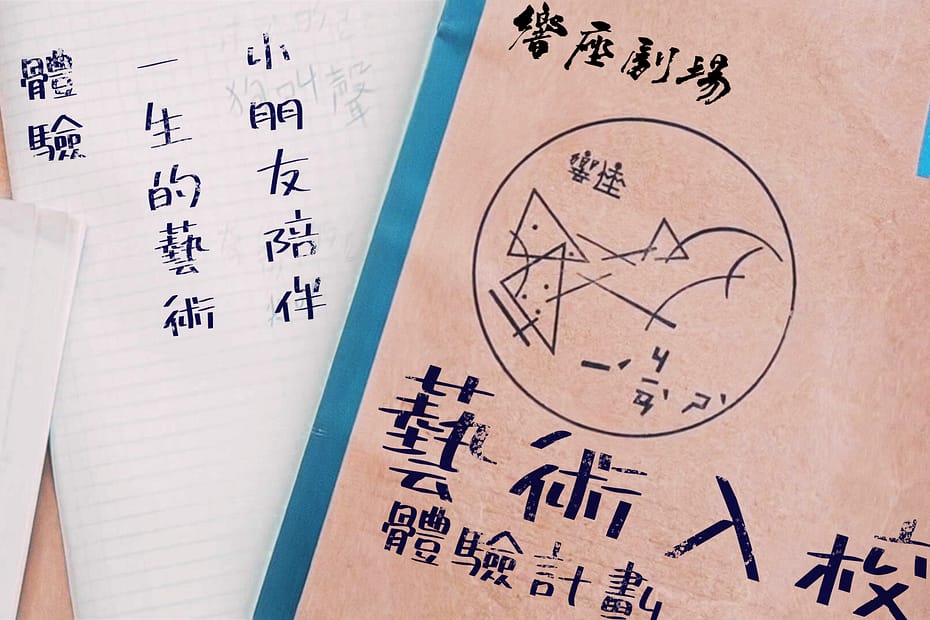 小朋友陪伴
一生的藝術
體驗
狗叫聲
響座劇場
藝術入校
體驗計劃